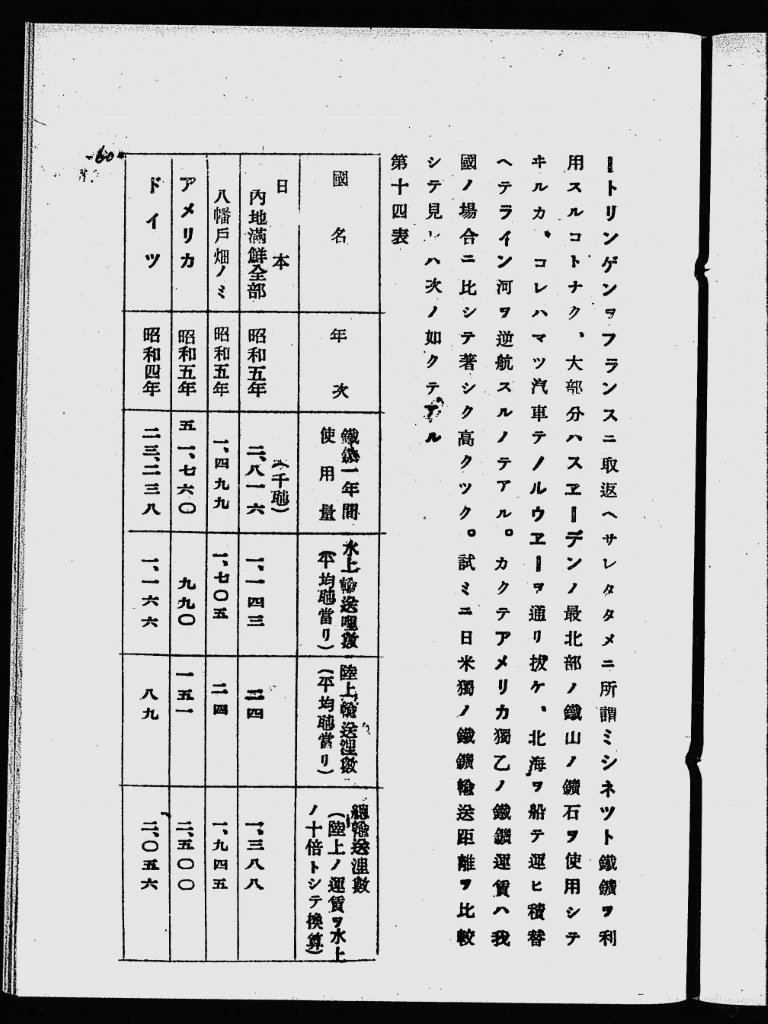 ートリンゲンヲフランスニ取返ヘサレタタメニ所謂ミシネツト鐵鑛ヲ利
用スルコトナク、大部分ハスヱーデンノ最北部ノ鐵山ノ鑛石ヲ使用シテ
ヰルカ、コレハマツ汽車テノルウヱーヲ通リ拔ケ、北海ヲ船テ運ヒ積替
ヘテライン河ヲ逆航スルノテアル。カクテアメリカ獨乙ノ鐵鑛運賃ハ我
國ノ場合ニ比シテ著シク高クツク。試ミニ日米獨ノ鐵鑛輸送距離ヲ比較
シテ見レハ次ノ如クテアル
第十四表
國名
年次
鐵鑛一年間
使用量
水上輸送浬數
(平均砘當リ)
陸上輸送浬數
(平均砘當リ)
總輸送浬數
(陸上ノ運賃ヲ水上
ノ十倍トシテ換算)
日本
內地滿鮮全部
昭和五年
(千砘)
二、八一六
一、一四三
二四
一、三八八
八幡戶畑ノミ
昭和五年
一、四九九
一、七〇五
二四
一、九四五
アメリカ
昭和五年
五一、七六〇
九九〇
一五一
二、五〇〇
ドイツ
昭和四年
二三、二三八
一、一六六
八九
二、〇五六
-60-